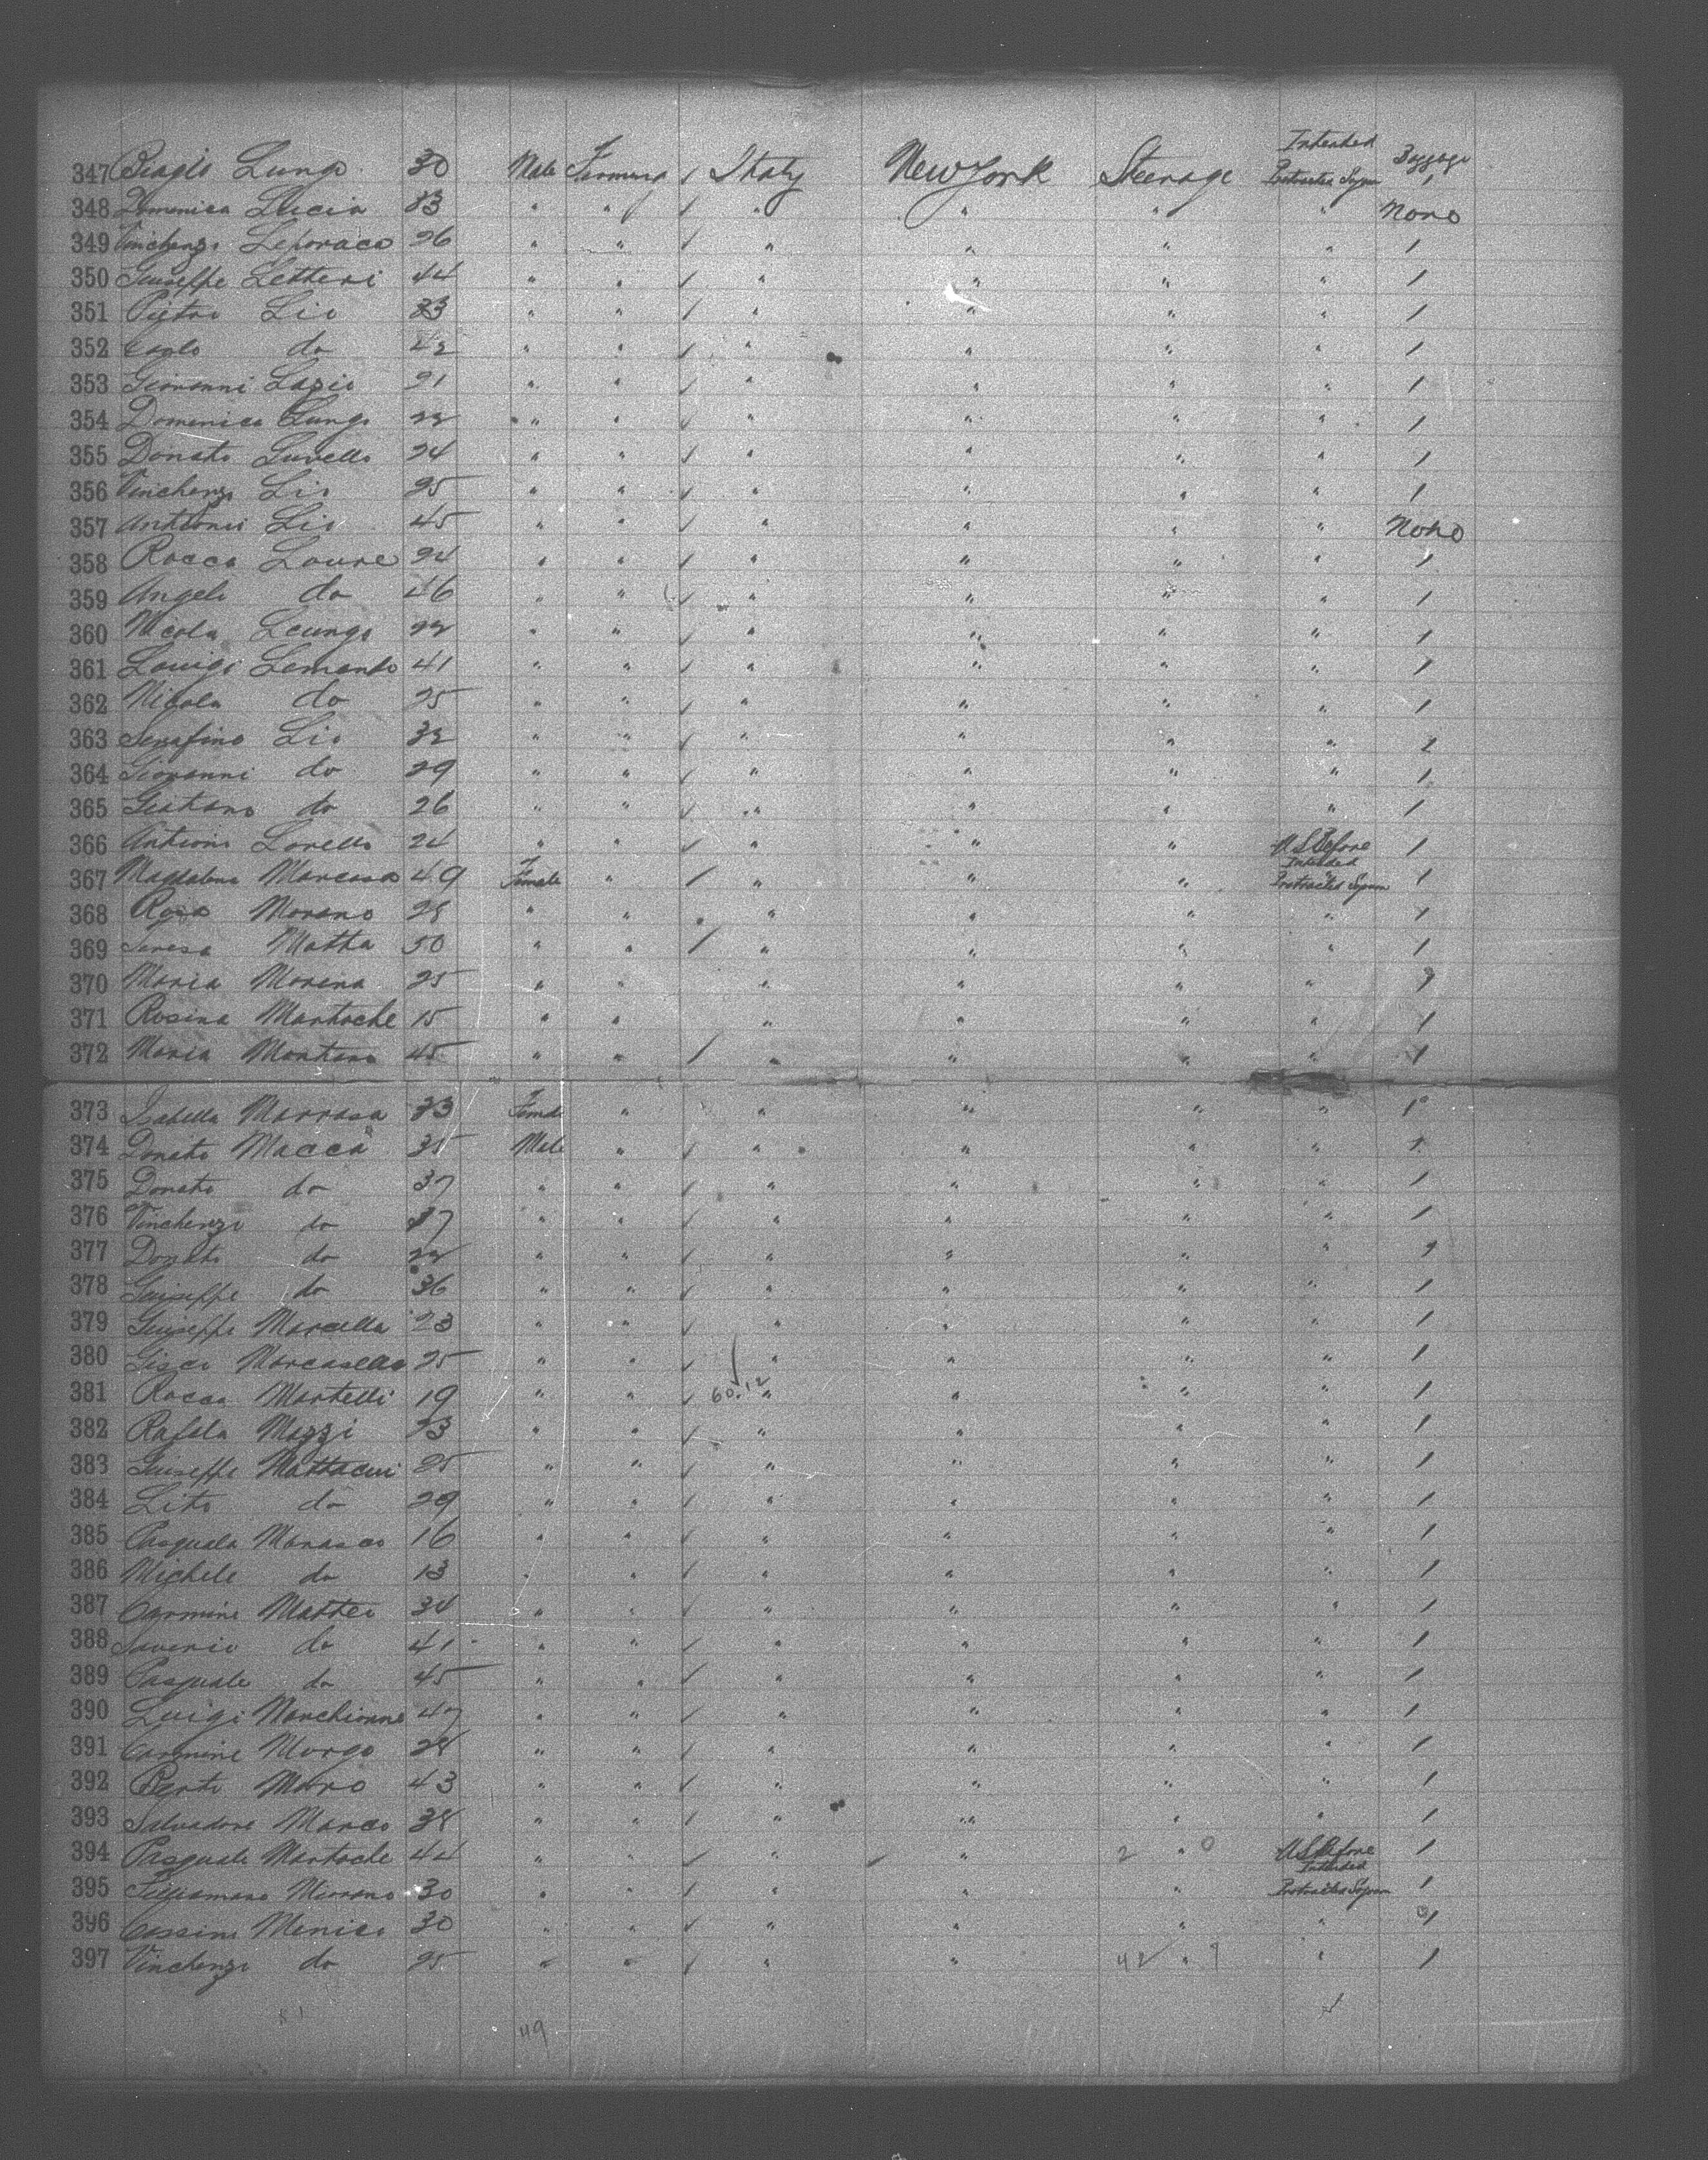 Intended Baggage
347 Biagio Lungo 30 Male Farming ✓ Italy New York Steerage Protracted Sojurn 1
348 Domenica Lucia 33 " " ✓ " " " " None
349 Vinchenzo Leporace 26 " " ✓ " " " " 1
350 Guiseppe Letteri 44 " " ✓ " " " " 1
351 Pietro Lio 33 " " ✓ " " " " 1
352 Carlo do 42 " " ✓ " " " " 1
353 Giovanni Lazio 21 " " ✓ " " " " 1
354 Domenico Lungo 22 " " ✓ " " " " 1
355 Donato Luvello 24 " " ✓ " " " " 1
356 Vinchenzo Lio 25 " " ✓ " " " " 1
357 Antionio Lio 45 " " ✓ " " " " None
358 Rocco Loure 24 " " ✓ " " " " 1
359 Angelo do 46 " " ✓ " " " " 1
360 Nicola Leungo 22 " " ✓ " " " " 1
361 Louigi Lemento 41 " " ✓ " " " " 1
362 Nicola do 25 " " ✓ " " " " 1
363 Serafino Lio 32 " " ✓ " " " " 2
364 Giovanni do 29 " " ✓ " " " " 1
365 Guitano do 26 " " ✓ " " " " 1
366 Antionio Lorello 24 " " ✓ " " " U.S. Before 1
Intended
367 Magdalena Marcasa 49 Female " / " " " Protracted Sojurn 1
368 Rosa Morano 28 " " " " " " 1
369 Teresa Matta 50 " " / " " " " 1
370 Maria Morina 25 " " " " " " 2
371 Rosina Martoche 15 " " " " " " 1
372 Maria Montano 45 " " / " " " " 1
373 Isabella Marrasa 33 Female " " " " " 1
374 Donato Macca 35 Male " ✓ " " " " 1
375 Donato do 37 " " ✓ " " " " 1
376 Vinchenzo do 37 " " ✓ " " " " 1
377 Donato do 22 " " ✓ " " " " 2
378 Guiseppe do 36 " " ✓ " " " " 1
379 Guiseppe Marcella 23 " " ✓ " " " " 1
380 Gisco Marcasella 25 " " ✓ " " " " 1
381 Rocco Martelli 19 " " ✓ 60.12 " " " " 1
382 Rafela Mazzi 23 " " ✓ " " " " 1
383 Guiseppe Mattacui 25 " " ✓ " " " " 1
384 Lito do 29 " " ✓ " " " " 1
385 Pasquala Marasco 16 " " ✓ " " " " 1
386 Michele do 13 " " ✓ " " " " 1
387 Carmine Matteo 34 " " ✓ " " " " 1
388 Saverio do 41 " " ✓ " " " " 1
389 Pasquale do 45 " " ✓ " " " " 1
390 Luigi Marchionne 47 " " ✓ " " " " 1
391 Carmine Murgo 28 " " ✓ " " " " 1
392 Berto Maro 43 " " ✓ " " " " 1
393 Salvadore Marco 38 " " ✓ " " " " 1
394 Pasquale Martoche 44 " " ✓ " ✓ " 2 " 0 U.S. Before 1
Intended
395 Morano 30 " " ✓ " " " Protracted Sojurn 1
396 Cossimo Menico 30 " " ✓ " " " " 1
397 Vinchenzo do 25 " " ✓ " " 42 " 9 " 1
49